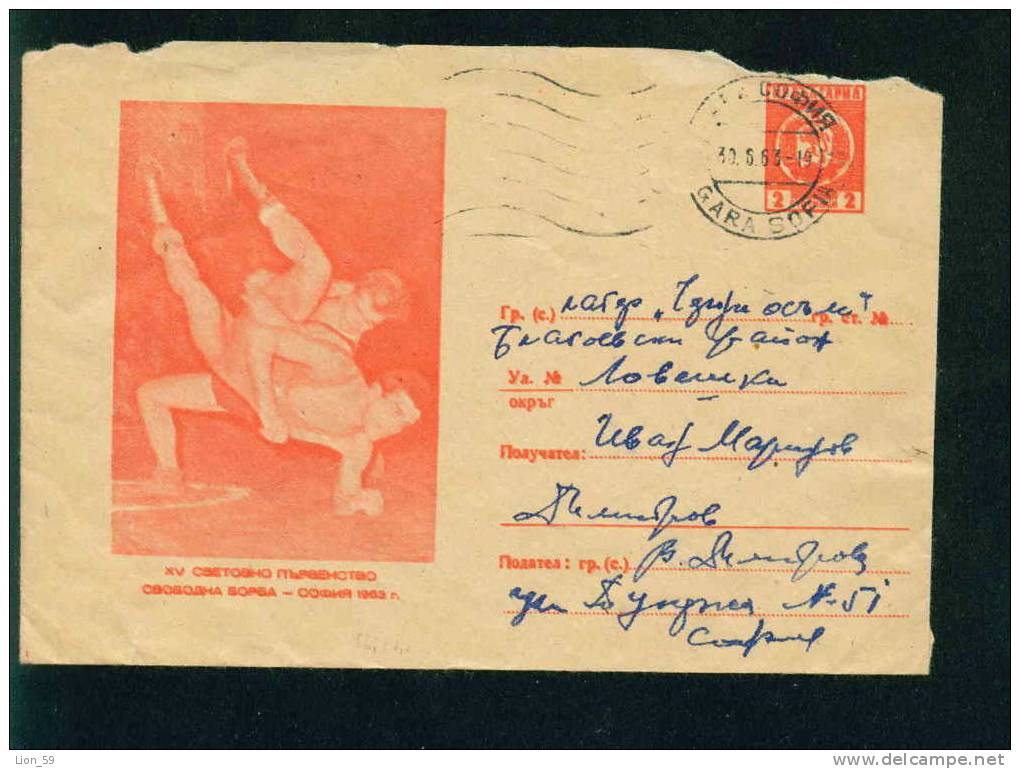 СОФИЯ
30.6.63-19
GARA SOFIA
2 2
Гр. (с.) гр. ст. №
район
Ул. № Ловешки
окръг
Получател: Иван Маринов
Димитров
Подател: гр. (с.) В. Димитров
ул. Дунджа №51
София
XV СВЕТОВНО ПЪРВЕНСТВО
СВОБОДНА БОРБА – СОФИЯ 1963 г.
Lion_59
www.delcampe.net